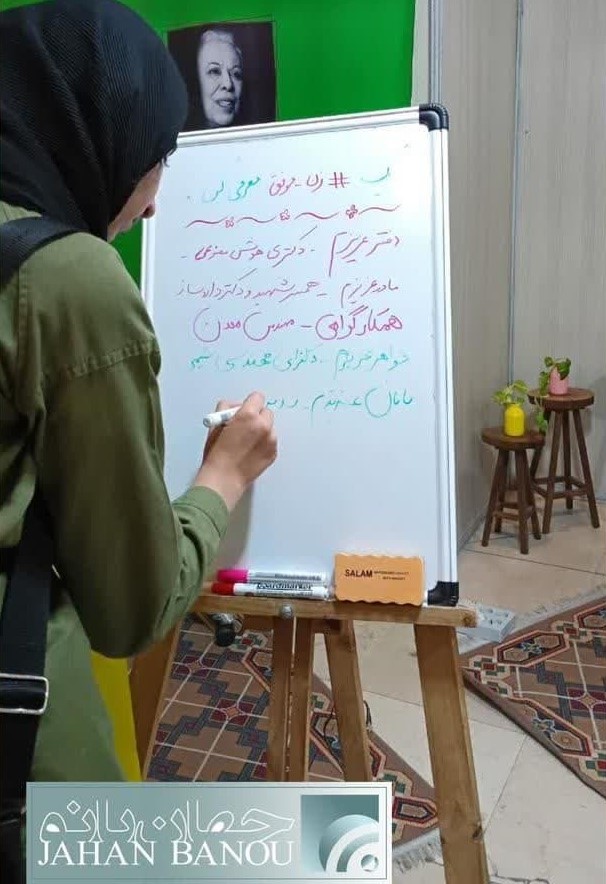 یک #زن_موفق معرفی کن.
دختر عزیزم - دکتری هوش مصنوعی -
مادر عزیزم - همسر شهید و دکتر داروساز
همکار گرامی - مهندس معدن
خواهر عزیزم - دکترای مهندسی شیمی
مامان عزیزم -
boardmarker
SALAM
جهان بانو
JAHAN BANOU